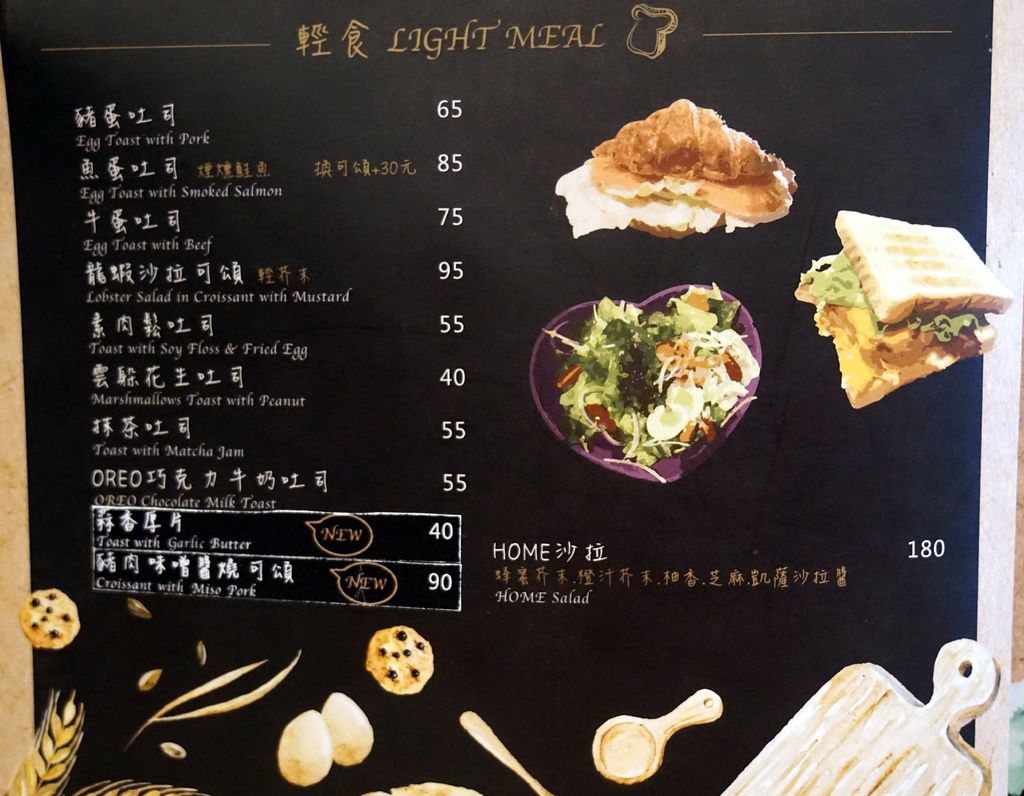 輕食 LIGHT MEAL
豬蛋吐司 65
Egg Toast with Pork
魚蛋吐司 煙燻鮭魚 換可頌+30元 85
Egg Toast with Smoked Salmon
牛蛋吐司 75
Egg Toast with Beef
龍蝦沙拉可頌 輕芥末 95
Lobster Salad in Croissant with Mustard
素肉鬆吐司 55
Toast with Soy Floss & Fried Egg
雲躲花生吐司 40
Marshmallows Toast with Peanut
抹茶吐司 55
Toast with Matcha Jam
OREO巧克力牛奶吐司 55
OREO Chocolate Milk Toast
蒜香厚片 NEW 40
Toast with Garlic Butter
豬肉味噌醬燒可頌 NEW 90
Croissant with Miso Pork
HOME沙拉 180
蜂蜜芥末.橙汁芥末.柚香.芝麻凱薩沙拉醬
HOME Salad